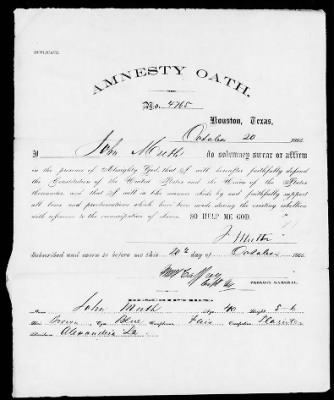 DUPLICATE.
AMNESTY OATH.
No. 4765
Houston, Texas,
October 20 1865.
I John Muth do solemnly swear or affirm
in the presence of Almighty God, that I will hereafter faithfully defend
the Constitution of the United States and the Union of the States
thereunder, and that I will in like manner abide by and faithfully support
all laws and proclamations which have been made during the existing rebellion
with reference to the emancipation of slaves: SO HELP ME GOD.
J Muth
Subscribed and sworn to before me this 20th day of October 1865.
PROVOST MARSHAL.
DESCRIPTION.
Name John Muth Age 40 Height 5-6
Hair Brown Eyes Blue Complexion Fair Occupation
Residence Alexandria La